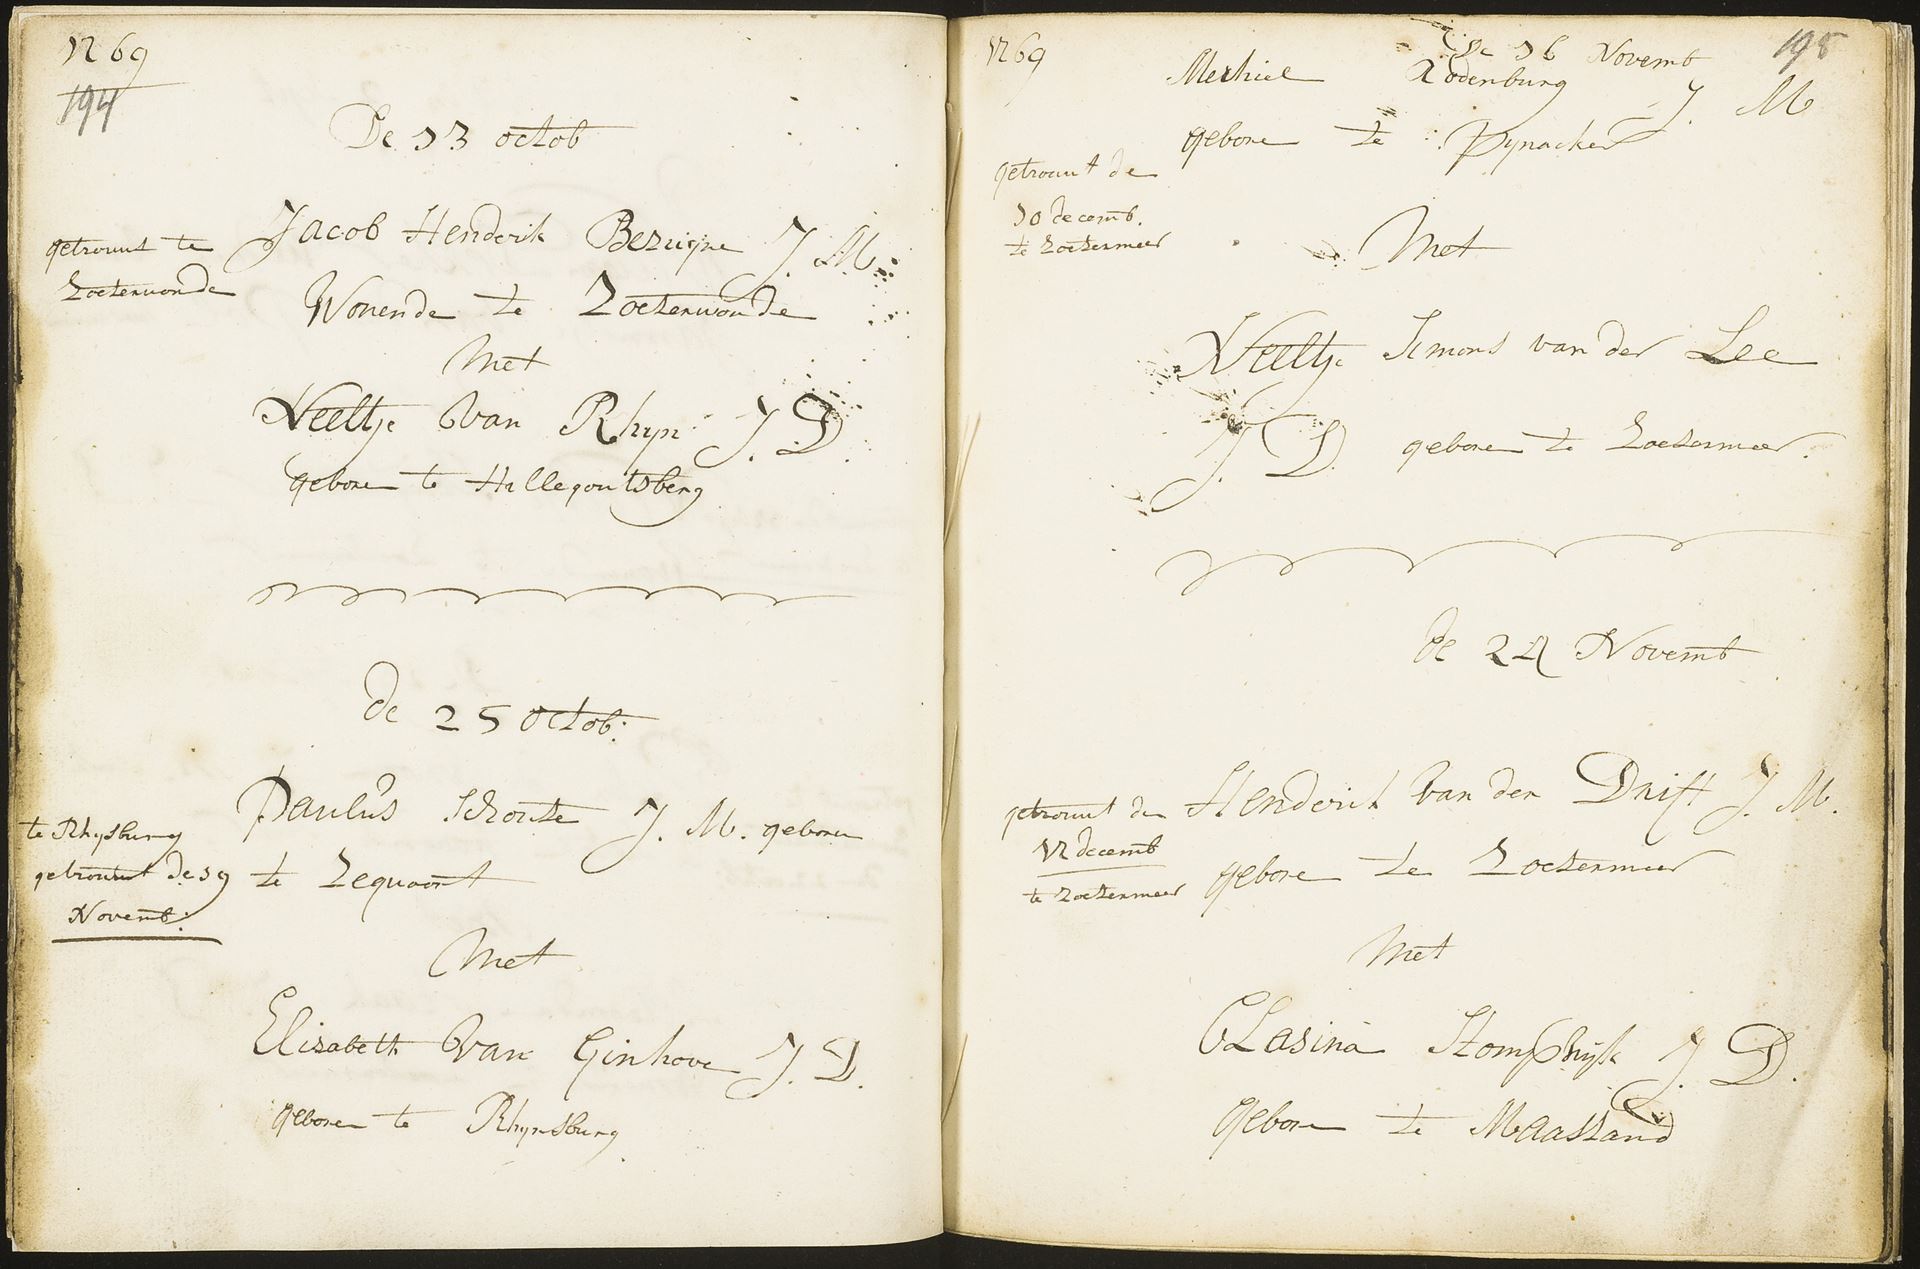 1769
194
De 13 octob
Jacob Henderik Bezuyne J. M.
getrouwt te
Wonende te Zoeterwoude
Zoeterwoude
Met
Neeltje Van Rhyn J. D.
gebore te Hillegontsberg
de 25 octob:
Paulus Schoute J. M. geboren
te Rhysburg
te Zeguaort
getrouwt de 19
Novemb:
Met
Elisabeth Van Ginhove J. D.
geboren te Rhynsburg
1769
195
De 16 Novemb
Mechiel Rodenburg J. M
gebore te Pynacker
getrouwt de
10 decemb.
te Zoetermeer
Met
Neeltje Simons van der Lee
J. D. gebore te Zoetermeer.
de 24 Novemb
Henderik Van der Drift J. M.
getrouwt den
12 decemb
gebore te Zoetermeer
te Zoetermeer
Met
CLasina Stompwyk J D.
Gebore te Maasland